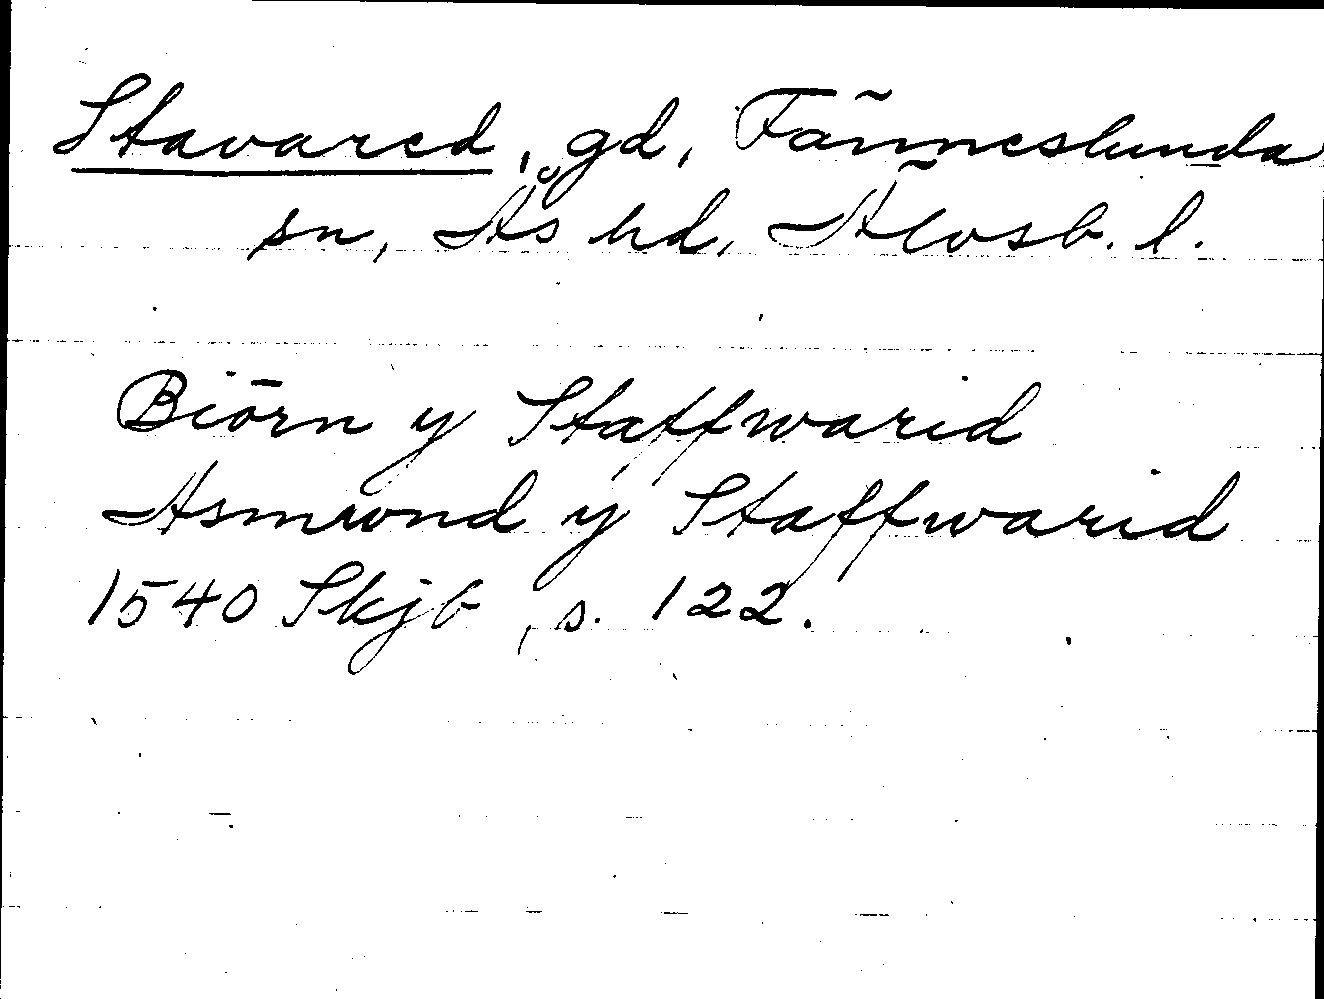 Stavared, gd, Fänneslunda
sn, Ås hd, Älvsb. l.
Biörn y Staffwarid
Asmwnd y Staffwarid
1540 Skjb, s. 122.